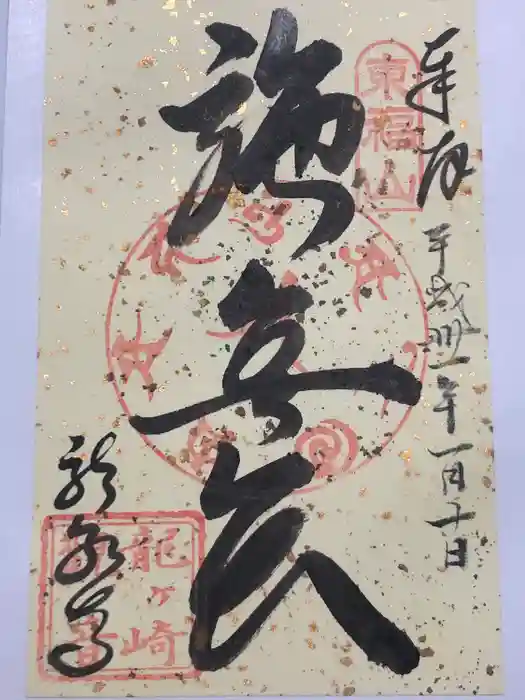 奉拝
東福山
平成卅一年一月十日
施無畏
龍ヶ崎
観音
龍泉寺